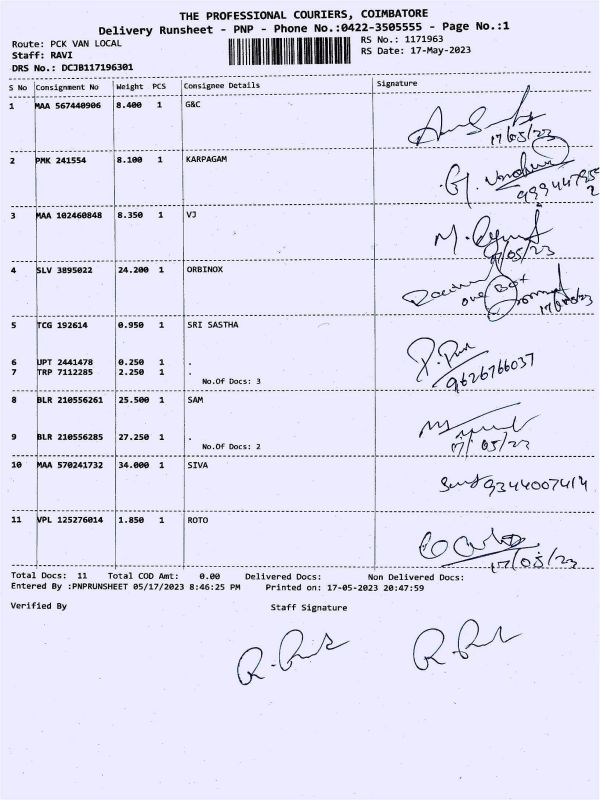 THE PROFESSIONAL COURIERS, COIMBATORE
Delivery Runsheet - PNP - Phone No.:0422-3505555 - Page No.:1
Route: PCK VAN LOCAL
RS No.: 1171963
Staff: RAVI
RS Date: 17-May-2023
DRS No.: DCJB117196301
S No Consignment No Weight PCS Consignee Details Signature
1 MAA 567440906 8.400 1 G&C
17/05/23
2 PMK 241554 8.100 1 KARPAGAM
3 MAA 102460848 8.350 1 VJ
/05/23
4 SLV 3895022 24.200 1 ORBINOX
one Box
5 TCG 192614 0.950 1 SRI SASTHA
6 UPT 2441478 0.250 1 .
7 TRP 7112285 2.250 1 .
9626766037
No.Of Docs: 3
8 BLR 210556261 25.500 1 SAM
17/05/23
9 BLR 210556285 27.250 1 .
No.Of Docs: 2
10 MAA 570241732 34.000 1 SIVA
9344007414
11 VPL 125276014 1.850 1 ROTO
17/05/23
Total Docs: 11 Total COD Amt: 0.00 Delivered Docs: Non Delivered Docs:
Entered By :PNPRUNSHEET 05/17/2023 8:46:25 PM Printed on: 17-05-2023 20:47:59
Verified By Staff Signature